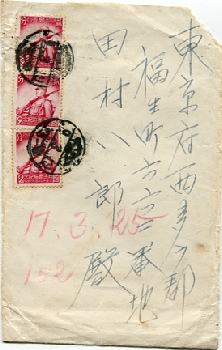 東京府西多摩郡
福生町六百番地
田村八郎殿
17.3.25
152